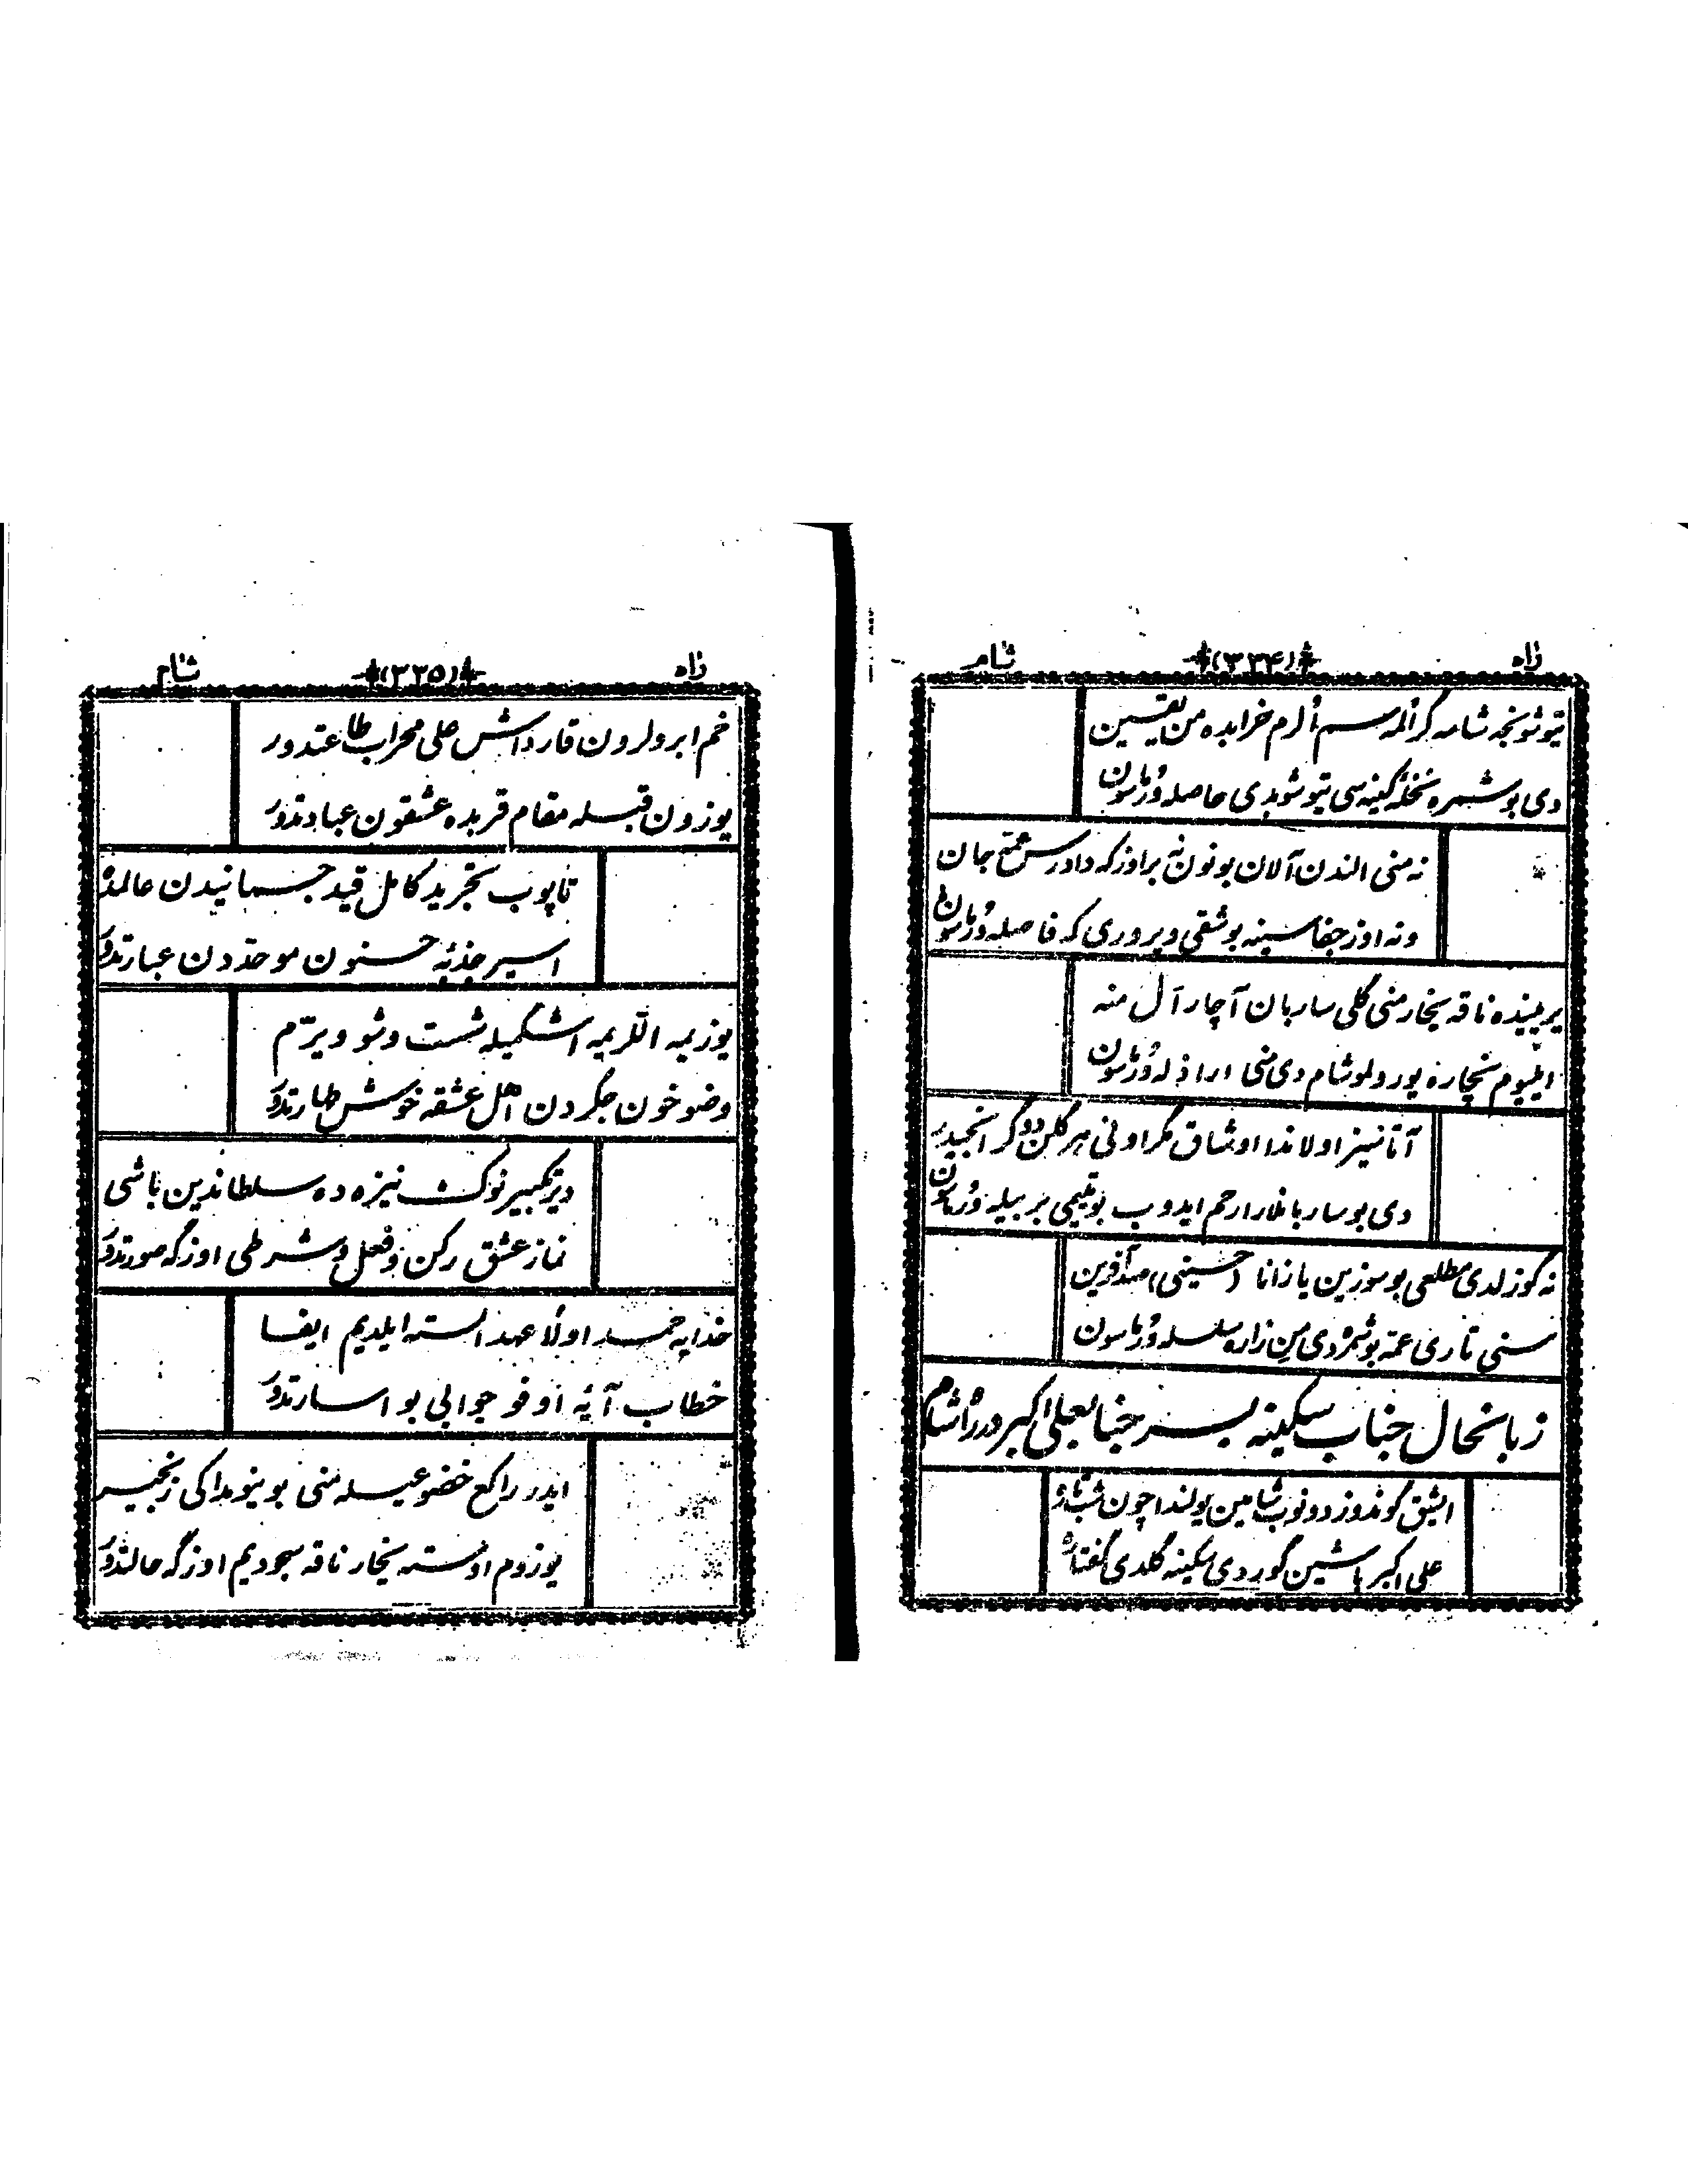 راه (۳۳۴) شام
یتوشونجه شامه گر ئولمه سم ئولرم خرابده من یقین
دی بو شمره نخله کینه سی یتوشوبدی حاصله وُرماسون
نه منی الندن آلان بونون نه بر اوزگه دادرس عمّه جان
ونه اوز جفاسینه بوشقی ویروری که فاصله وُرماسون
یر میننده ناقه یخار منی گلی ساربان آچار آل منه
ایلیوم نچاره یورولموشام دی منی اراذله وُرماسون
آتاسیز اولاندا اوشاق مگر اونی هر گلن دوگر انجیدر
دی بو ساربانلارا رحم ایدوب بو یتیمی بر بیله وُرماسون
نه گوزلدی مطلعی بو سوزین یازانا (حسینی) صد آفرین
سنی تاری عمّه بو شمره دی من زاره سلسله وُرماسون
زبانحال جناب سکینه بسر جناب علی اکبر در راه شام
ایشیق گوندوز دونوب شامین یولندا چون شب تاره
علی اکبر باشین گوردی سکینه گلدی گفتاره
راه (۳۳۵) شام
خم ابرولرون قارداش علی محراب طاعتدور
یوزون قبله مقام قربده عشقون عبادتدور
تاپوب تجرید کامل قید جسمانیدن عالمده
اسیر جذبهٔ حسنون موحّددن عبارتدور
یوزیمه اللریمه اشگمیله شست وشو ویرّم
وضو خون جگردن اهل عشقه خوش طهارتدور
دیر تکبیر نوک نیزه ده سلطاندین باشی
نماز عشق رکن وفعل وشرطی اوزگه صورتدور
خدایه حمد اولا عهد السته ایلدیم ایفا
خطاب آیهٔ اوفو جوابی بو اسارتدور
ایدر راکع خضوعیله منی بوینومداکی زنجیر
یوزوم اوسته یخار ناقه سجودیم اوزگه حالتدور